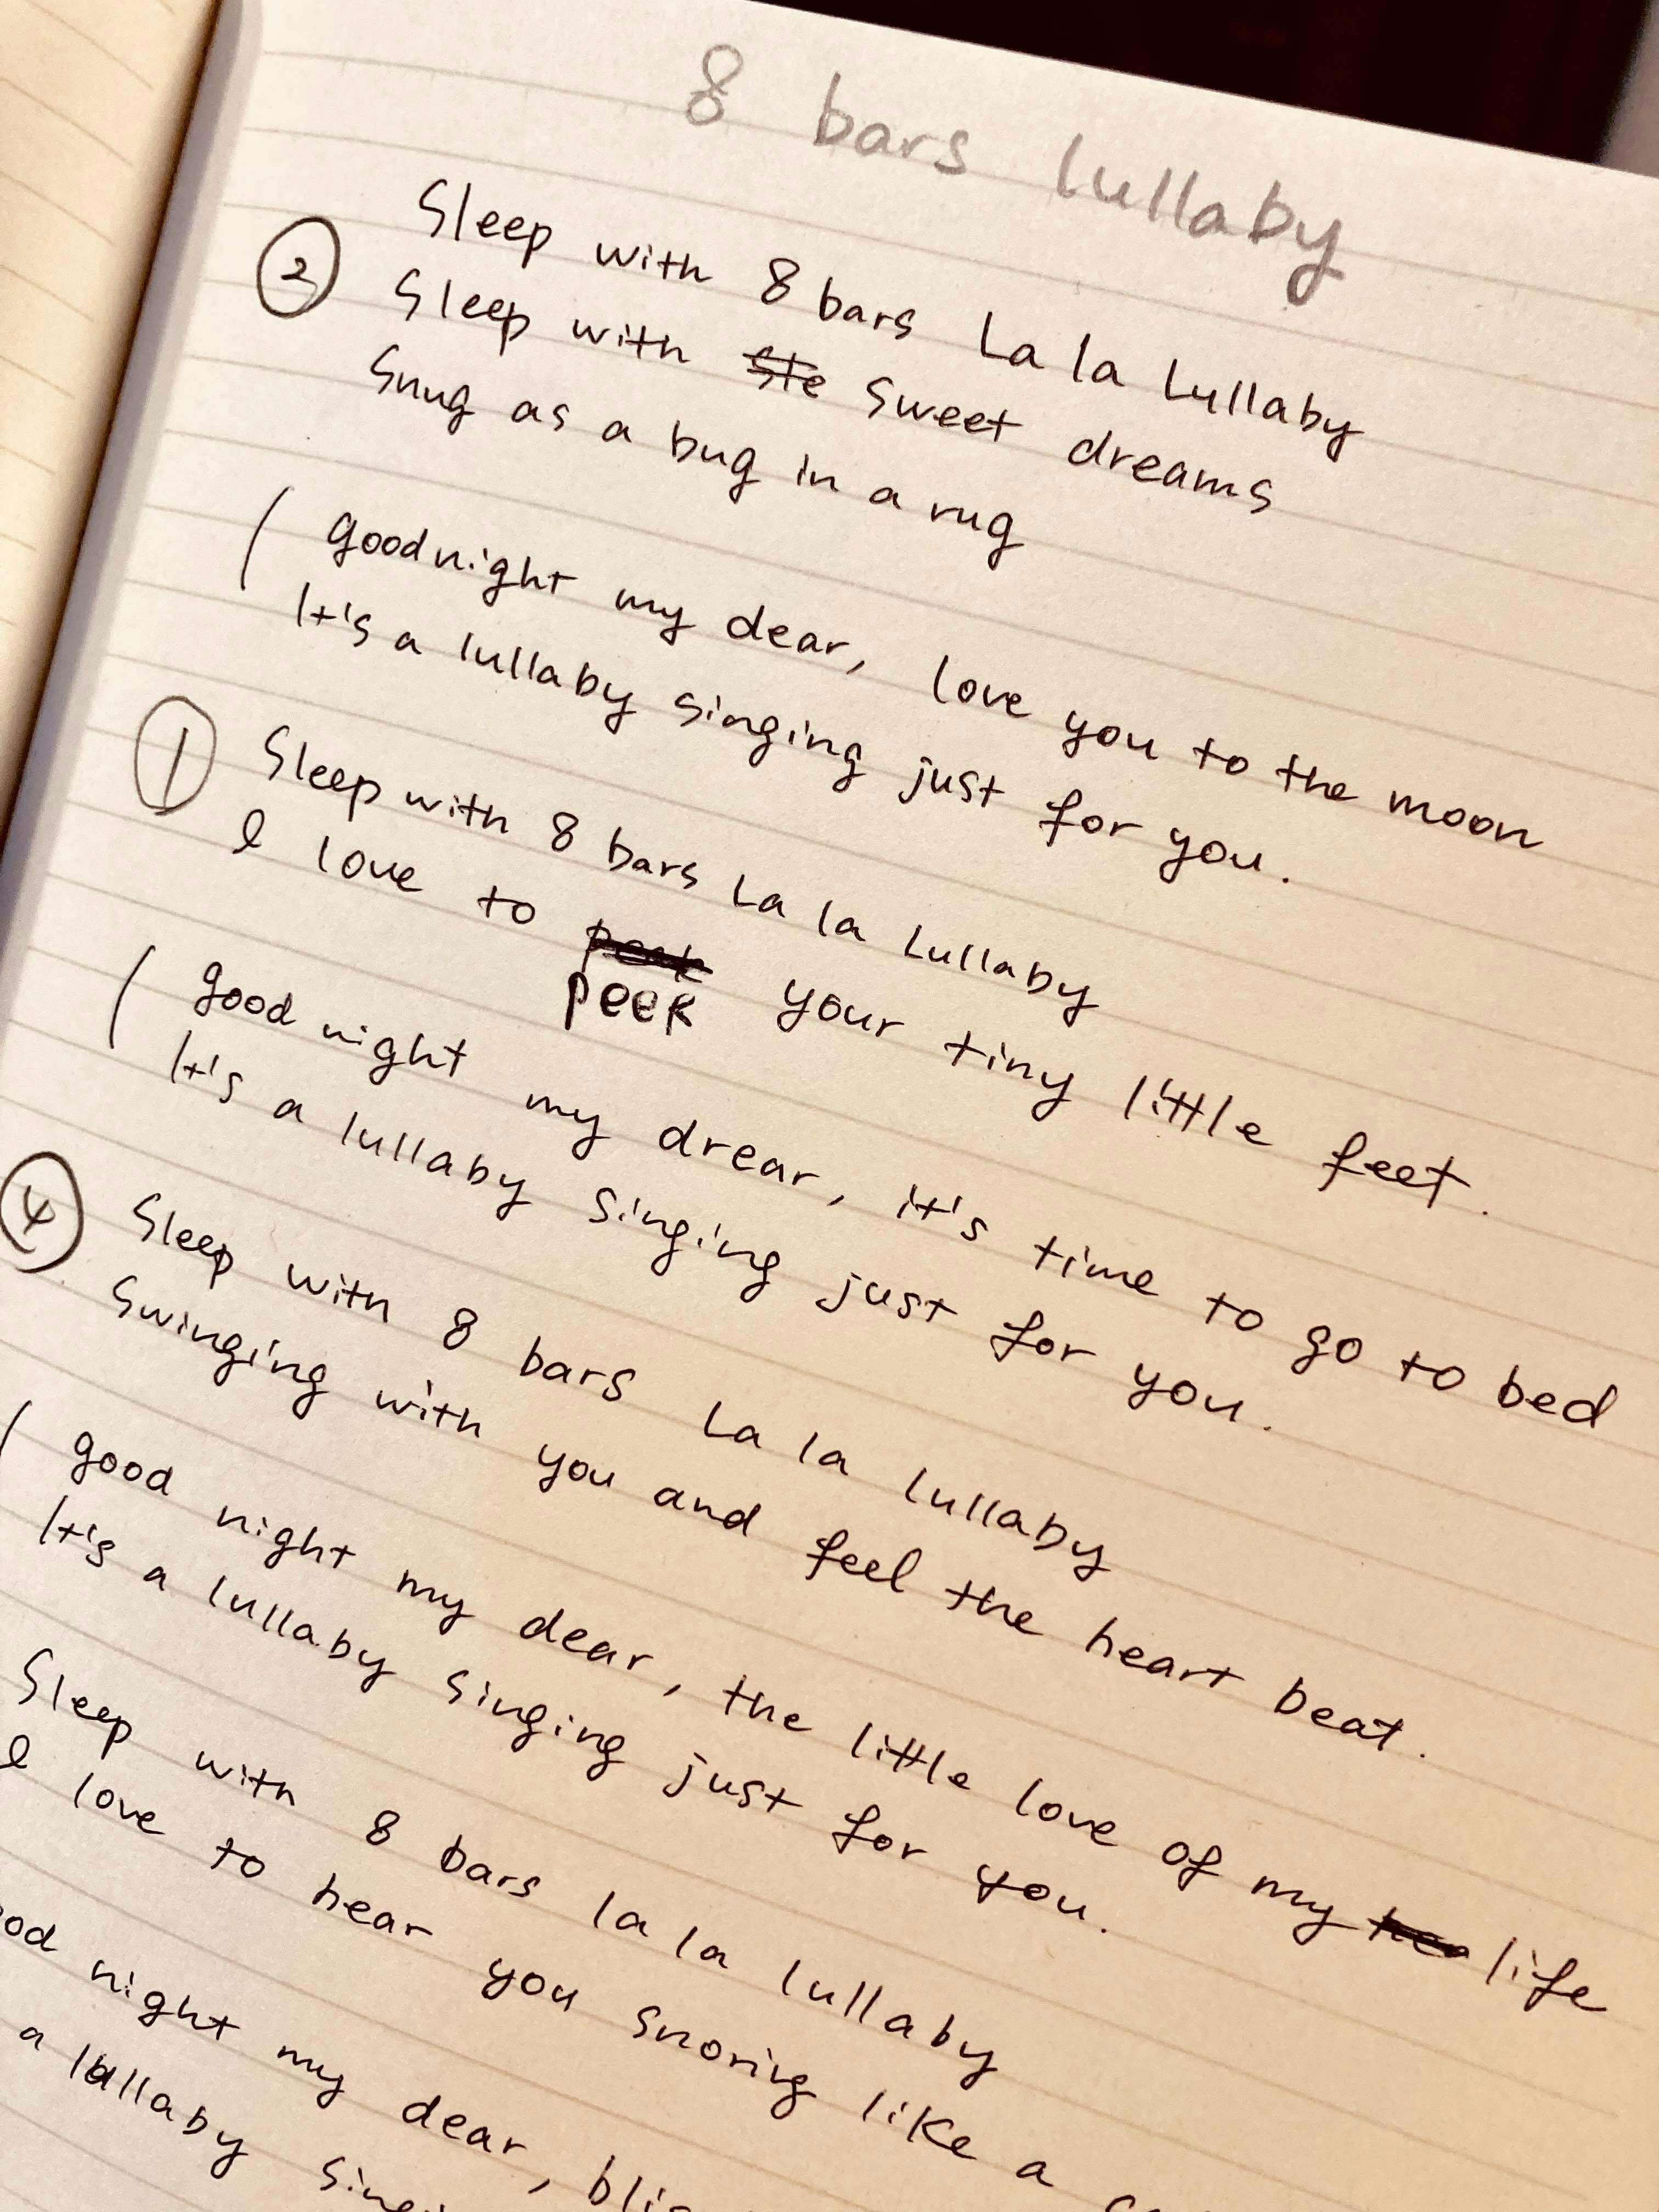 8 bars lullaby
Sleep with 8 bars La la Lullaby
② Sleep with ste sweet dreams
Snug as a bug in a rug
( goodnight my dear, love you to the moon
It's a lullaby singing just for you.
① Sleep with 8 bars La la Lullaby
I love to your tiny little feet.
peek
( good night my drear, it's time to go to bed
It's a lullaby singing just for you.
④ Sleep with 8 bars La la lullaby
Swinging with you and feel the heart beat.
( good night my dear, the little love of my life
It's a lullaby singing just for you.
Sleep with 8 bars la la lullaby
I love to hear you snorig like a
night my dear,
a lullaby